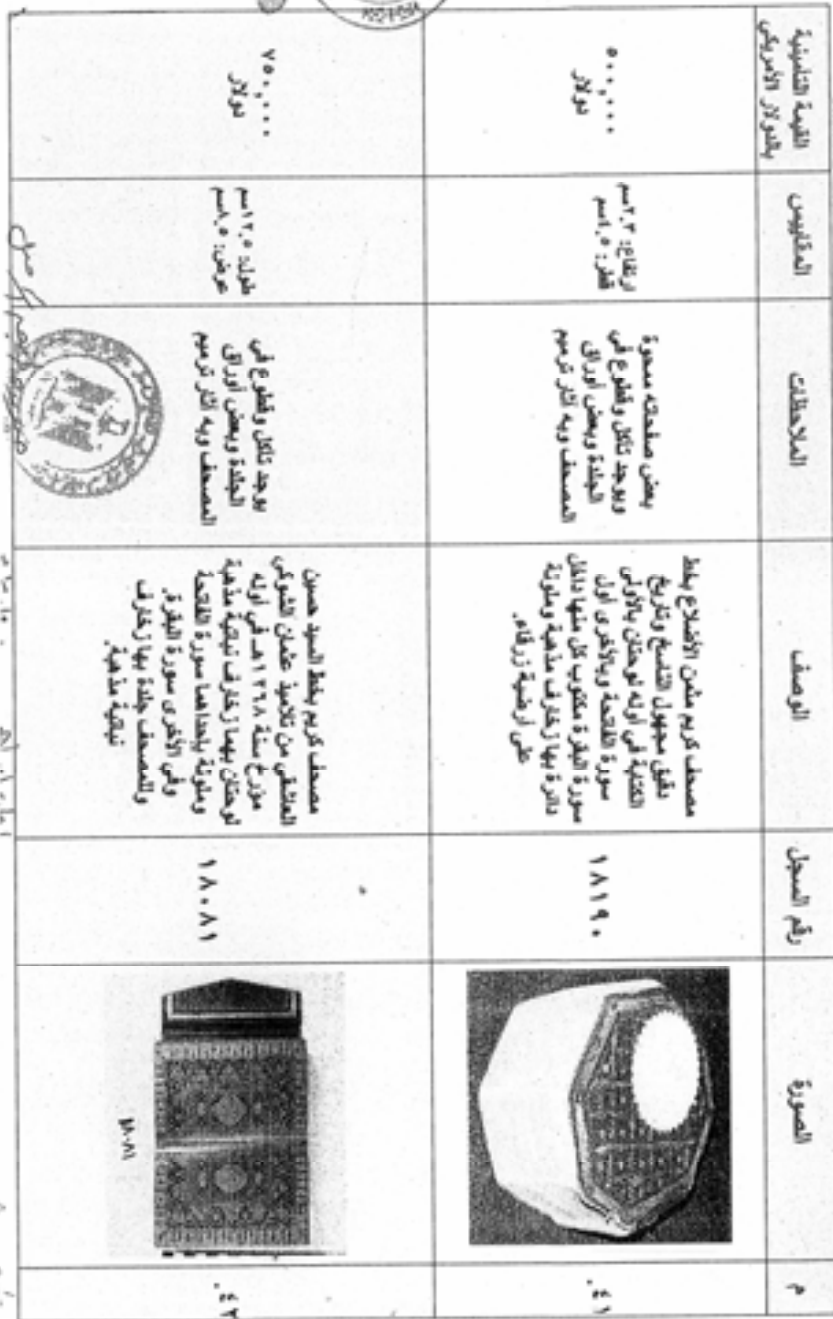 م
الصورة
رقم السجل
الوصف
الملاحظات
المقاييس
القيمة التأمينية
بالدولار الأمريكي
٤١.
١٨١٩٠
مصحف كريم مثمن الأضلاع بخط
دقيق مجهول الناسخ وتاريخ
الكتابة في أوله لوحتان بالأولى
سورة الفاتحة وبالأخرى أول
سورة البقرة مكتوب كل منها داخل
دائرة بها زخارف مذهبة وملونة
على أرضية زرقاء.
بعض صفحاته ممحوة
ويوجد تآكل وقطوع في
الجلدة وبعض أوراق
المصحف وبه آثار ترميم
ارتفاع: ٢,٣سم
قطر: ٤,٥سم
٥٠٠,٠٠٠
دولار
٤٢.
١٨٠٨١
١٨٠٨١
مصحف كريم بخط السيد حسين
من تلاميذ عثمان الشوكي
مؤرخ سنة ١٢٦٨هـ في أوله
لوحتان بهما زخارف نباتية مذهبة
وملونة بإحداهما سورة الفاتحة
وفي الأخرى سورة البقرة.
وللمصحف جلدة بها زخارف
نباتية مذهبة.
يوجد تآكل وقطوع في
الجلدة وبعض أوراق
المصحف وبه آثار ترميم
طول: ١٢,٥سم
عرض: ٨,٥سم
٧٥٠,٠٠٠
دولار